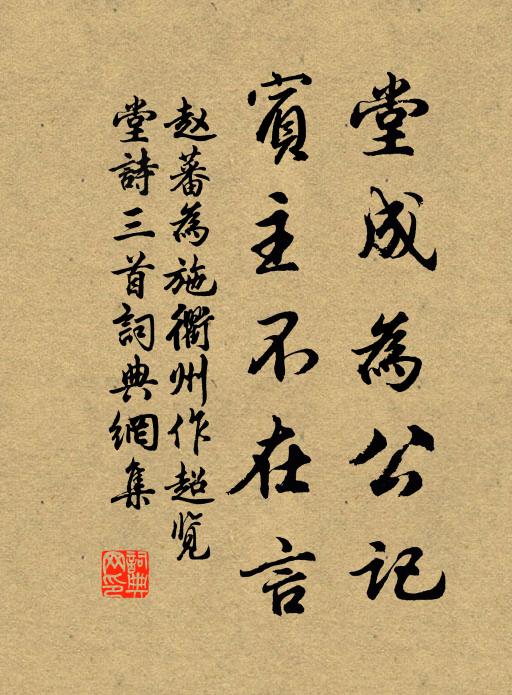 堂成為公記
賓主不在言
赵蕃為施衢州作超览
堂詩三首詞典網集
詞典
网印